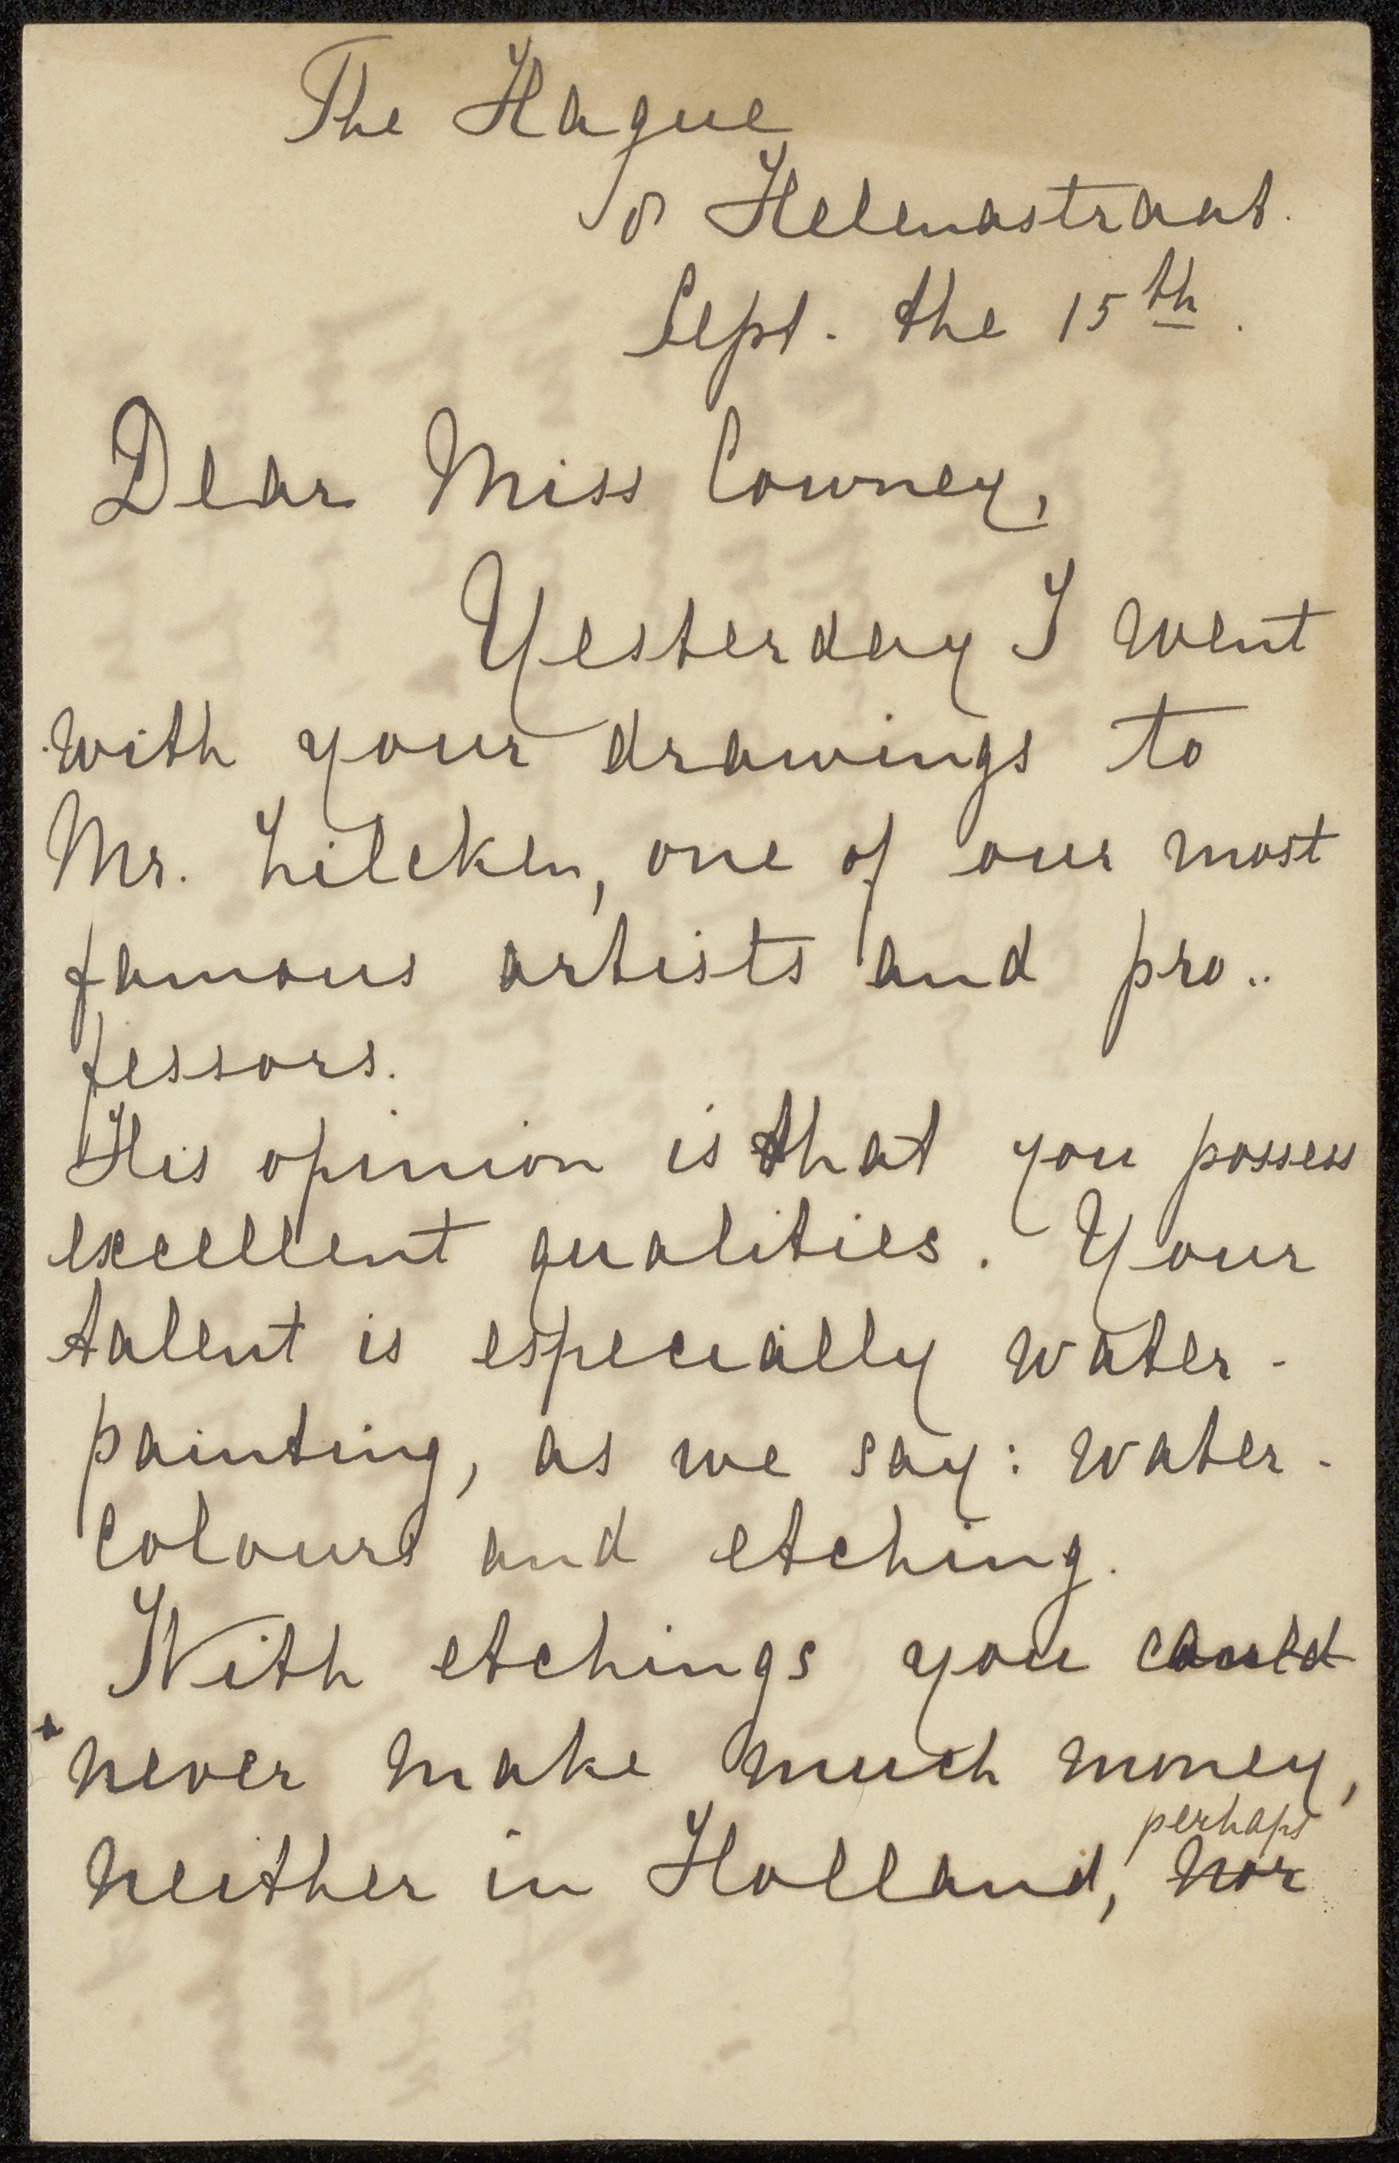 The Hague
8 Helenastraat.
Sept. the 15th.
Dear Miss Cowney,
Yesterday I went
with your drawings to
Mr. Zilcken, one of our most
famous artists and pro..
fessors.
His opinion is that you possess
excellent qualities. Your
talent is especially water-
painting, as we say: water-
colours and etching.
With etchings you could
never make much money,
perhaps
neither in Holland, nor